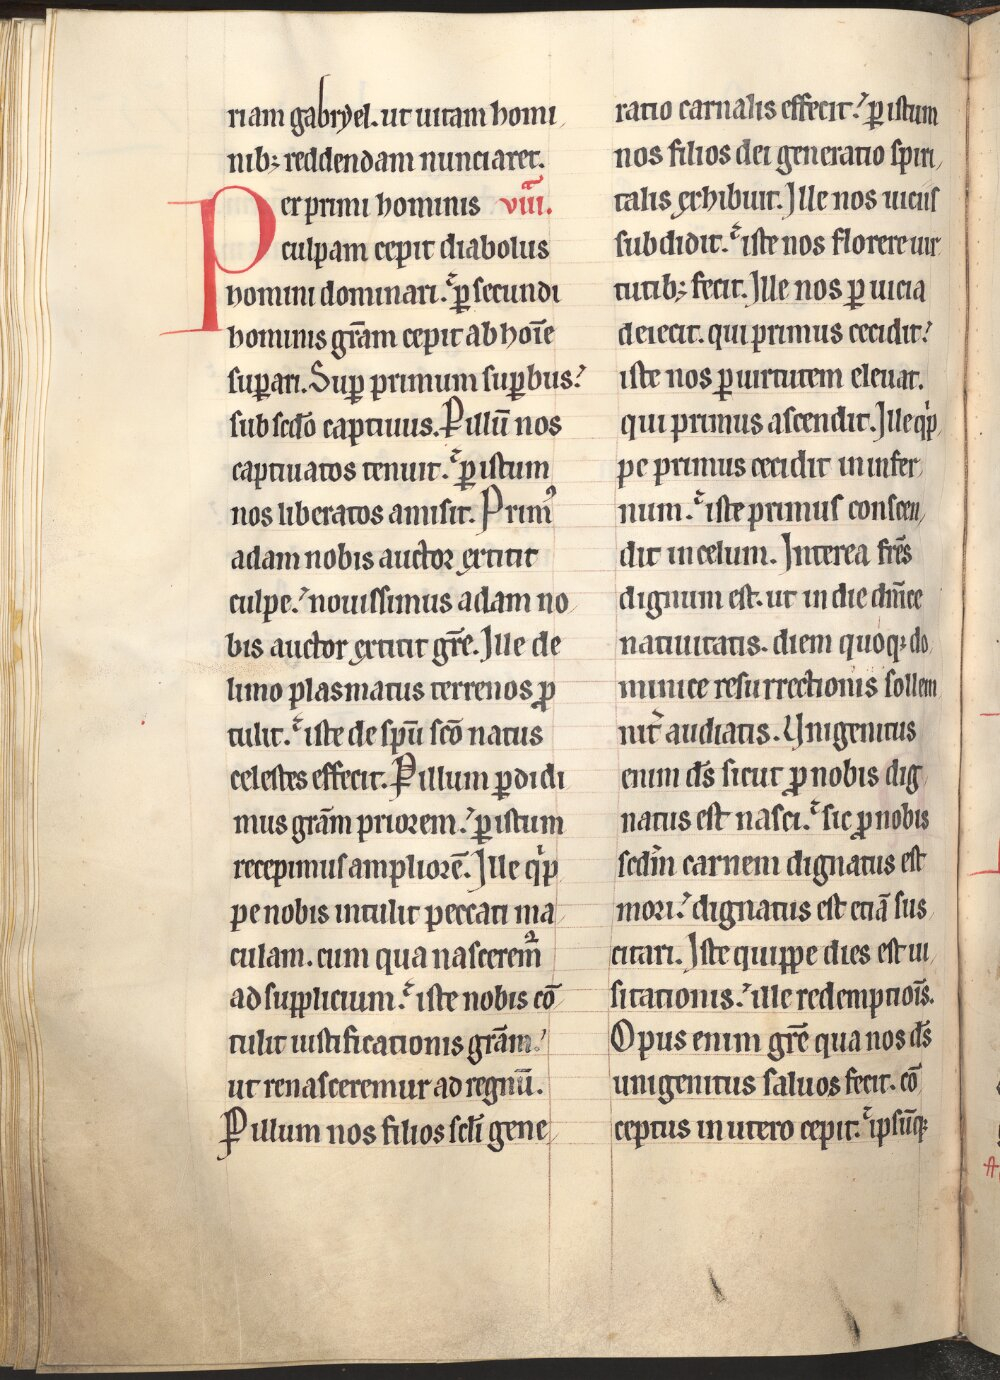 riam gabryel. ut uitam homi
nib; reddendam nunciaret.
Per primi hominis viiii.
culpam cepit diabolus
homini dominari. ꝑ secundi
hominis gr̄am cepit ab hoīe
suꝑari. Suꝑ primum suꝑbus.
sub scd̄o captiuus. Ꝑ illū nos
captiuatos tenuit. ꝑ istum
nos liberatos amisit. Primꝰ
adam nobis auctor extitit
culpe. nouissimus adam no
bis auctor extitit gr̄e. Ille de
limo plasmatus terrenos ꝑ
tulit. iste de spū scō natus
celestes effecit. Ꝑ illum ꝑdidi
mus grām priorem. ꝑ istum
recepimus ampliorē. Ille qͥp
pe nobis intulit peccati ma
culam. cum qua nasceremur̃
ad supplicium. iste nobis cō
tulit iustificationis grām.
ut renasceremur ad regnū.
Ꝑ illum nos filios scl̄i gene
ratio carnalis effecit. ꝑ istum
nos filios dei generatio spiri
talis exhibuit. Ille nos uiciis
subdidit. iste nos florere uir
tutib; fecit. Ille nos ꝑ uicia
deiecit. qui primus cecidit.
iste nos ꝑ uirtutem eleuat.
qui primus ascendit. Ille qͥp
pe primus cecidit in infer
num. iste primus conscen
dit in celum. Interea fr̄s
dignum est. ut in die dn̄ice
natiuitatis. diem quoq; do
minice resurrectionis sollem
nit̄ audiatis. Unigenitus
enim ds̄ sicut ꝓ nobis dig
natus est nasci. sic ꝓ nobis
scdm̄ carnem dignatus est
mori. dignatus est etiā sus
citari. Iste quippe dies est ui
sitationis. ille redemptiois̄.
Opus enim gr̄e qua nos ds̄
unigenitus saluos fecit. cō
ceptus in utero cepit. ipsūq;